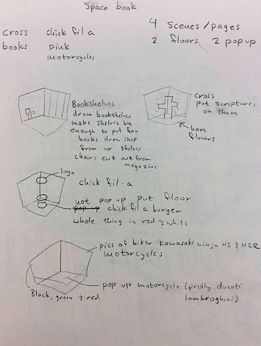 Space book
cross chick fil a
books pink
motorcycles
4 scenes/pages
2 floors 2 pop up
Bookshelves
draw bookshelves
make shelves big
enough to put fun
books draw shop
from ur shelves
chairs cut out from
magazine
cross
put scriptures
on them
have
flowers
logo
chick fil-a
not pop up put floor
pop up chick fil a burger
whole thing in red & white
pics of biker kawasaki ninja H2 & H2R
motorcycles
pop up motorcycle (prolly ducati
lambroghini)
Black, green & red